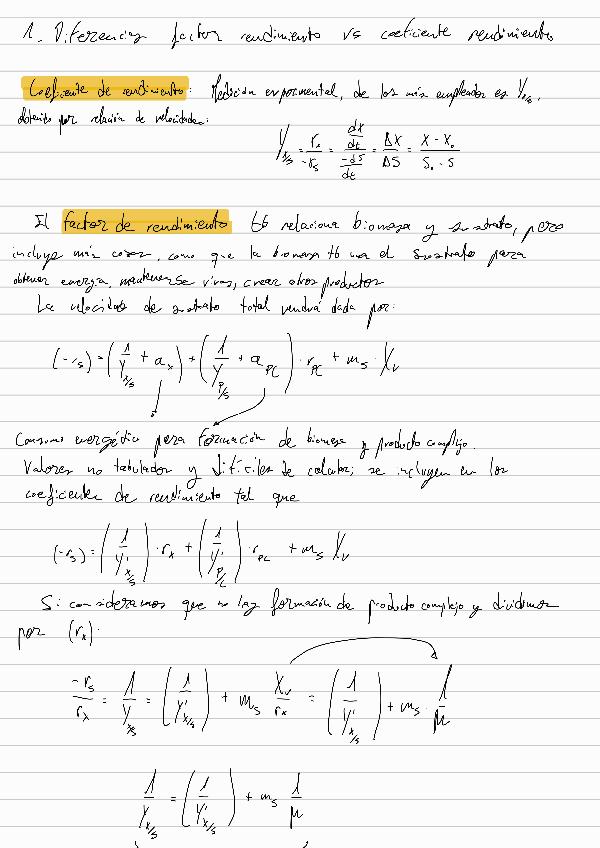 1. Diferencias factor rendimiento vs coeficiente rendimiento
Coeficiente de rendimiento: Medición experimental, de los más empleados es Y_{x/s},
obtenido por relación de velocidades:
Y_{x/s} = \frac{r_x}{-r_s} = \frac{\frac{dX}{dt}}{\frac{-dS}{dt}} = \frac{ΔX}{ΔS} = \frac{X - X_0}{S_0 - S}
El factor de rendimiento tb relaciona biomasa y sustrato, pero
incluye más cosas, como que la biomasa tb usa el sustrato para
obtener energía, mantenerse vivas, crear otros productos
La velocidad de sustrato total vendrá dada por:
(-r_s) = (\frac{1}{Y_{x/s}} + a_x) + (\frac{1}{Y_{P/S}} + a_{PC}) · r_{PC} + m_s · X_v
Consumo energético para formación de biomasa y producto complejo.
Valores no tabulados y difíciles de calcular; se incluyen en los
coeficientes de rendimiento tal que
(-r_s) = (\frac{1}{Y'_{x/s}}) · r_x + (\frac{1}{Y'_{P/C}}) · r_{PC} + m_s X_v
Si consideramos que no hay formación de producto complejo y dividimos
por (r_x):
\frac{-r_s}{r_x} = \frac{1}{Y_{x/s}} = (\frac{1}{Y'_{x/s}}) + m_s \frac{X_v}{r_x} = (\frac{1}{Y'_{x/s}}) + m_s · \frac{1}{μ}
\frac{1}{Y_{x/s}} = (\frac{1}{Y'_{x/s}}) + m_s \frac{1}{μ}